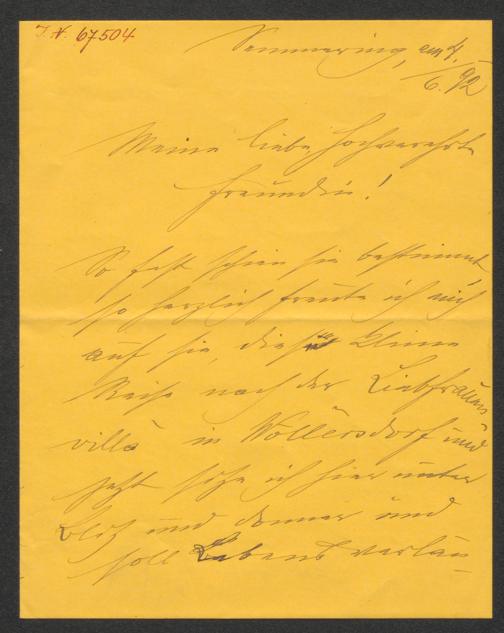 I.N. 67504
Semmering, am 4.
6. 92
Meine liebe, hochverehrte
Freundin!
So fest schien sie bestimmt
so herzlich freute ich mich
auf sie, diese kleine
Reise nach der Liebfrauen
villa in Wöllersdorf und
jetzt sitze ich hier unter
Blitz und Donner und
soll Lebens verlän-